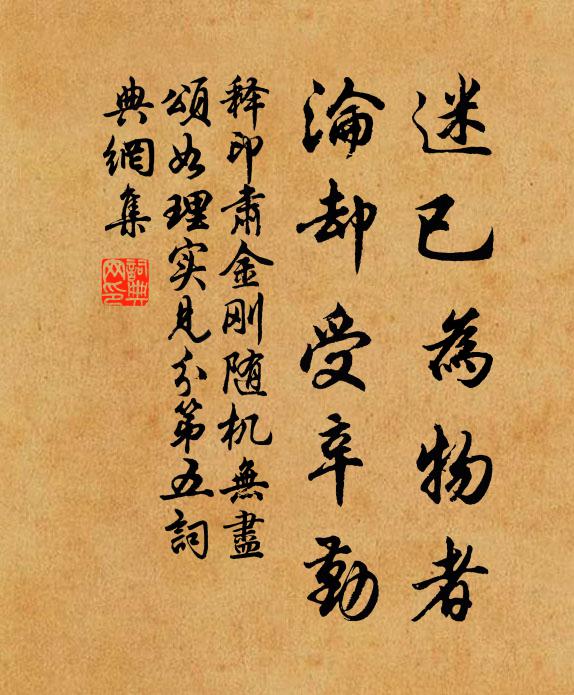 迷已為物者
淪却受辛勤
释印肃金刚随机無盡
頌如理实見分第五詞
典網集
詞典
网印